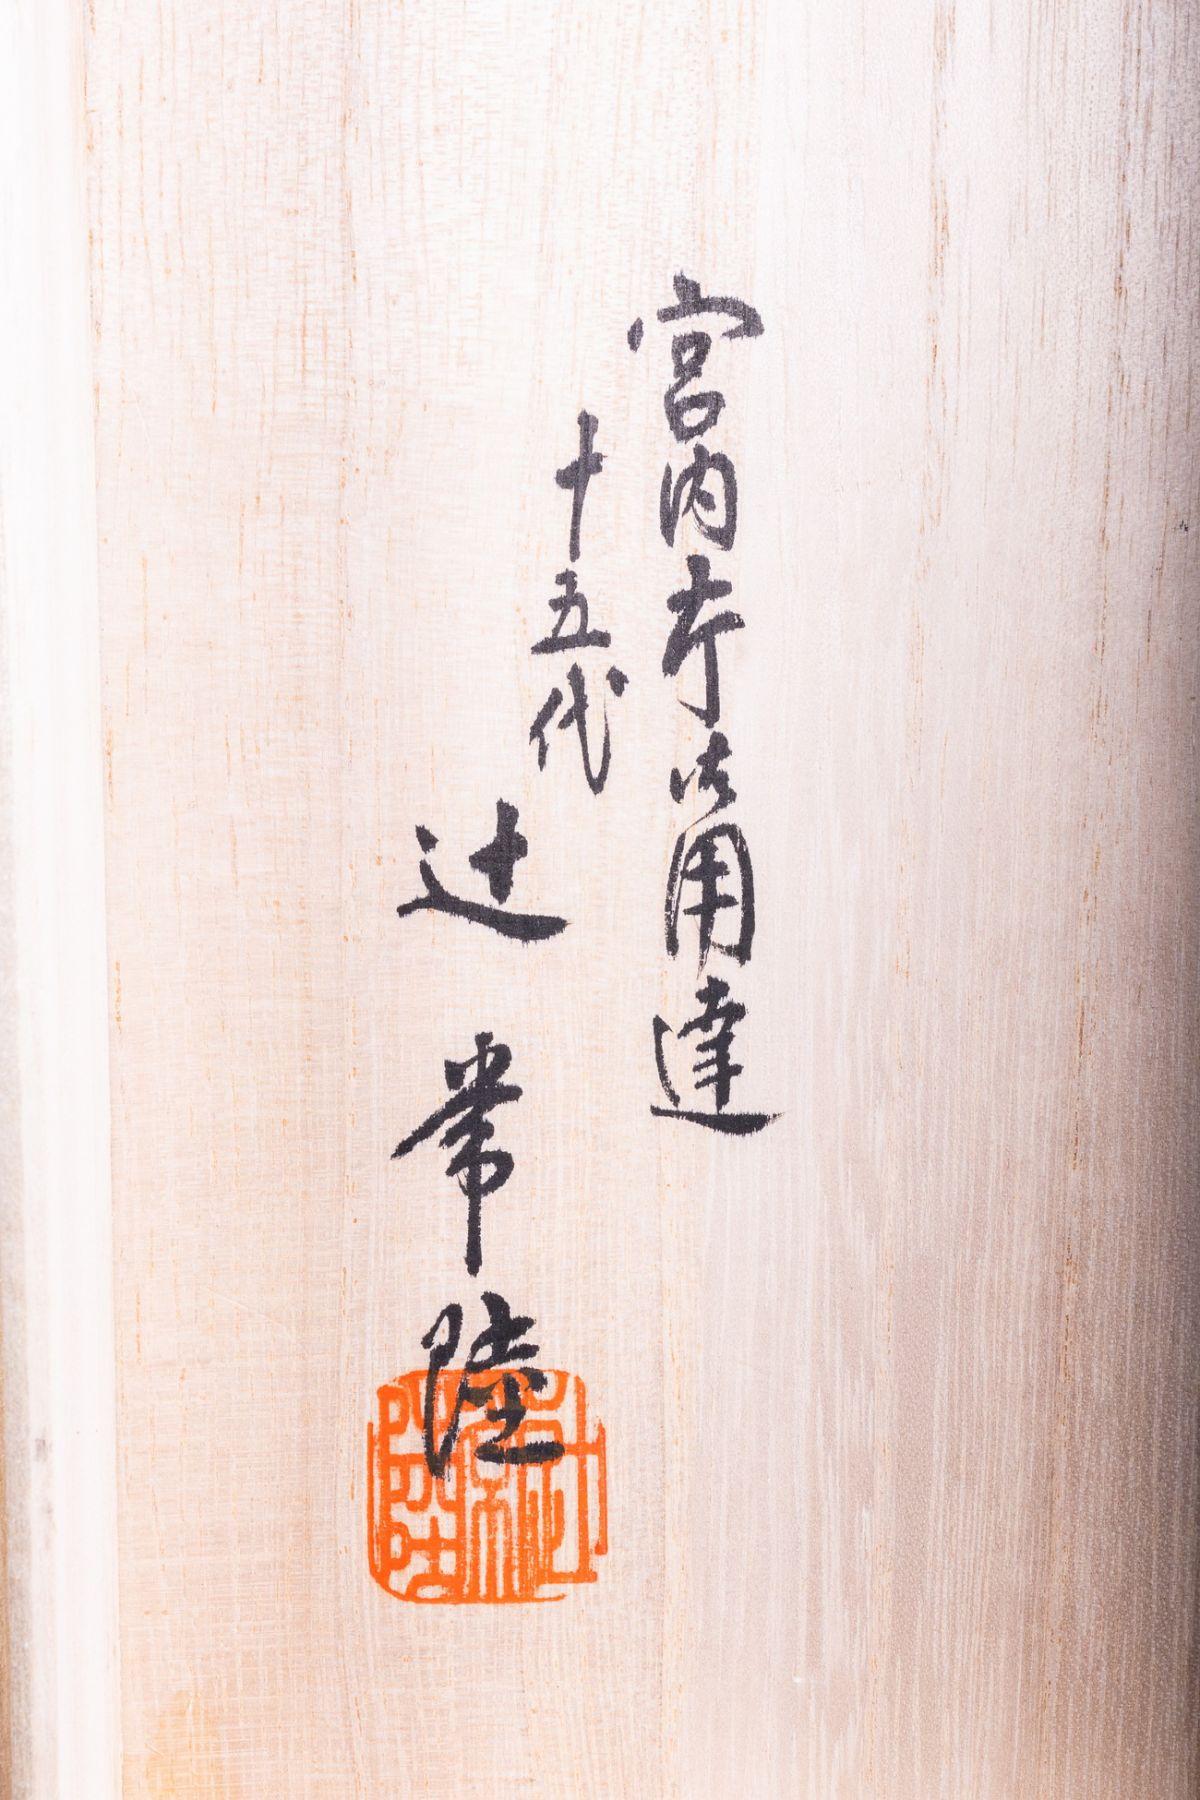 宮内庁御用達
十五代
辻常陸
辻常陸